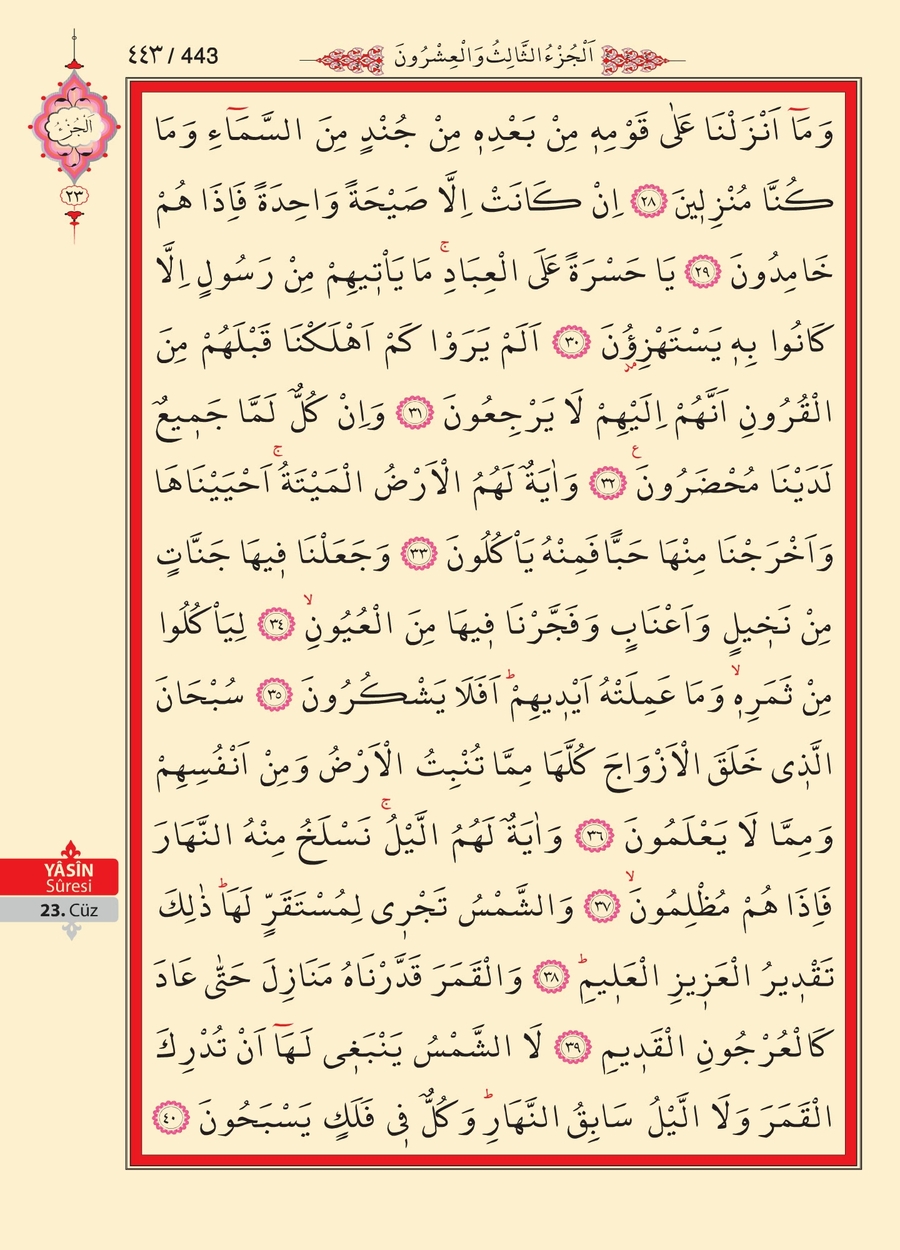 ٤٤٣ / 443
اَلْجُزْءُ الثَّالِثُ وَالْعِشْرُونَ
اَلْجُزْءُ
٢٣
وَمَٓا اَنْزَلْنَا عَلٰى قَوْمِه۪ مِنْ بَعْدِه۪ مِنْ جُنْدٍ مِنَ السَّمَٓاءِ وَمَا
كُنَّا مُنْزِل۪ينَ ﴿٢٨﴾ اِنْ كَانَتْ اِلَّا صَيْحَةً وَاحِدَةً فَاِذَا هُمْ
خَامِدُونَ ﴿٢٩﴾ يَا حَسْرَةً عَلَى الْعِبَادِۚ مَا يَأْت۪يهِمْ مِنْ رَسُولٍ اِلَّا
كَانُوا بِه۪ يَسْتَهْزِؤُ۫نَ ﴿٣٠﴾ اَلَمْ يَرَوْا كَمْ اَهْلَكْنَا قَبْلَهُمْ مِنَ
الْقُرُونِ اَنَّهُمْ اِلَيْهِمْ لَا يَرْجِعُونَ ﴿٣١﴾ وَاِنْ كُلٌّ لَمَّا جَم۪يعٌ
لَدَيْنَا مُحْضَرُونَ۟ ﴿٣٢﴾ وَاٰيَةٌ لَهُمُ الْاَرْضُ الْمَيْتَةُۚ اَحْيَيْنَاهَا
وَاَخْرَجْنَا مِنْهَا حَبًّا فَمِنْهُ يَأْكُلُونَ ﴿٣٣﴾ وَجَعَلْنَا ف۪يهَا جَنَّاتٍ
مِنْ نَخ۪يلٍ وَاَعْنَابٍ وَفَجَّرْنَا ف۪يهَا مِنَ الْعُيُونِۙ ﴿٣٤﴾ لِيَأْكُلُوا
مِنْ ثَمَرِه۪ۙ وَمَا عَمِلَتْهُ اَيْد۪يهِمْۜ اَفَلَا يَشْكُرُونَ ﴿٣٥﴾ سُبْحَانَ
الَّذ۪ى خَلَقَ الْاَزْوَاجَ كُلَّهَا مِمَّا تُنْبِتُ الْاَرْضُ وَمِنْ اَنْفُسِهِمْ
وَمِمَّا لَا يَعْلَمُونَ ﴿٣٦﴾ وَاٰيَةٌ لَهُمُ الَّيْلُۚ نَسْلَخُ مِنْهُ النَّهَارَ
فَاِذَا هُمْ مُظْلِمُونَۙ ﴿٣٧﴾ وَالشَّمْسُ تَجْر۪ى لِمُسْتَقَرٍّ لَهَاۜ ذٰلِكَ
تَقْد۪يرُ الْعَز۪يزِ الْعَل۪يمِۜ ﴿٣٨﴾ وَالْقَمَرَ قَدَّرْنَاهُ مَنَازِلَ حَتّٰى عَادَ
كَالْعُرْجُونِ الْقَد۪يمِ ﴿٣٩﴾ لَا الشَّمْسُ يَنْبَغ۪ى لَهَٓا اَنْ تُدْرِكَ
الْقَمَرَ وَلَا الَّيْلُ سَابِقُ النَّهَارِۜ وَكُلٌّ ف۪ى فَلَكٍ يَسْبَحُونَ ﴿٤٠﴾
YÂSÎN
Sûresi
23. Cüz